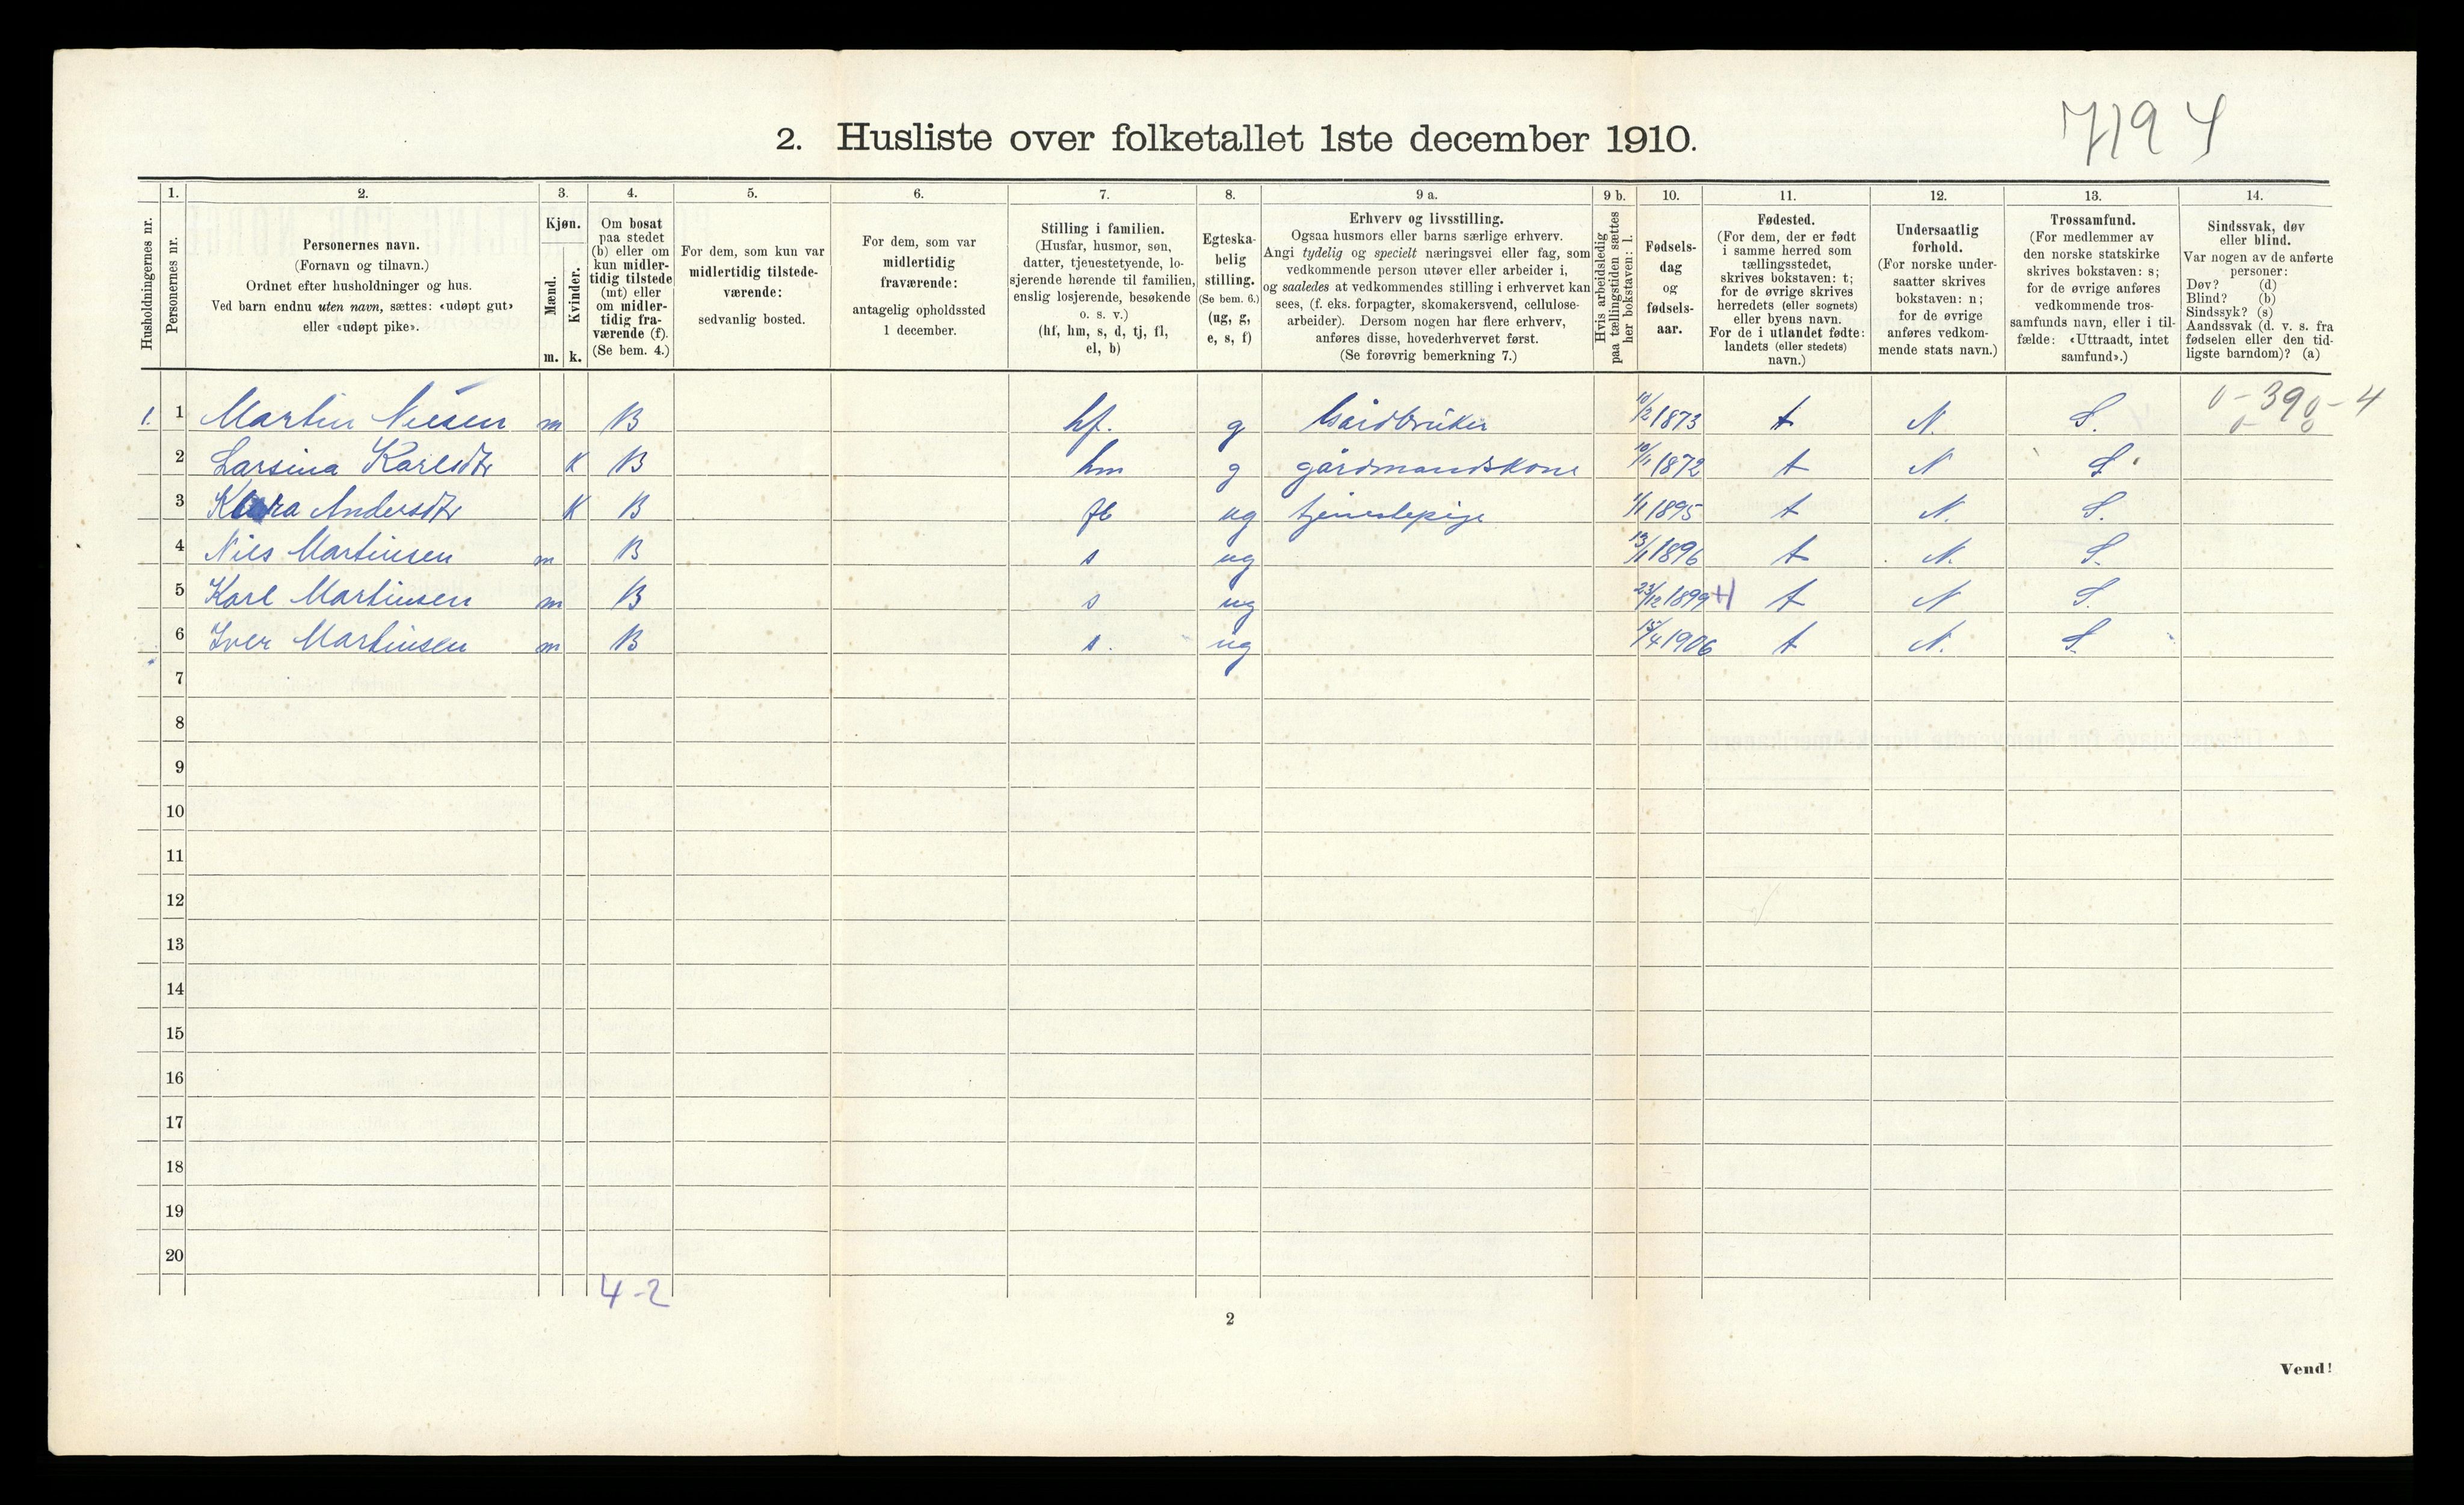 7194
2. Husliste over folketallet 1ste december 1910.
Husholdningernes nr.
1.
Personernes nr.
2.
Personernes navn.
(Fornavn og tilnavn.)
Ordnet efter husholdninger og hus.
Ved barn endnu uten navn, sættes: «udøpt gut»
eller «udøpt pike».
3.
Kjøn.
Mænd.
Kvinder.
m. k.
4.
Om bosat
paa stedet
(b) eller om
kun midler-
tidig tilstede
(mt) eller
om midler-
tidig fra-
værende (f).
(Se bem. 4.)
5.
For dem, som kun var
midlertidig tilstede-
værende:
sedvanlig bosted.
6.
For dem, som var
midlertidig
fraværende:
antagelig opholdssted
1 december.
7.
Stilling i familien.
(Husfar, husmor, søn,
datter, tjenestetyende, lo-
sjerende hørende til familien,
enslig losjerende, besøkende
o. s. v.)
(hf, hm, s, d, tj, fl,
el, b)
8.
Egteska-
belig
stilling.
(Se bem. 6.)
(ug, g,
e, s, f)
9 a.
Erhverv og livsstilling.
Ogsaa husmors eller barns særlige erhverv.
Angi tydelig og specielt næringsvei eller fag, som
vedkommende person utøver eller arbeider i,
og saaledes at vedkommendes stilling i erhvervet kan
sees, (f. eks. forpagter, skomakersvend, cellulose-
arbeider). Dersom nogen har flere erhverv,
anføres disse, hovederhvervet først.
(Se forøvrig bemerkning 7.)
9 b.
Hvis arbeidsledig
paa tællingstiden sættes
her bokstaven: l.
10.
Fødsels-
dag
og
fødsels-
aar.
11.
Fødested.
(For dem, der er født
i samme herred som
tællingsstedet,
skrives bokstaven: t;
for de øvrige skrives
herredets (eller sognets)
eller byens navn.
For de i utlandet fødte:
landets (eller stedets)
navn.)
12.
Undersaatlig
forhold.
(For norske under-
saatter skrives
bokstaven: n;
for de øvrige
anføres vedkom-
mende stats navn.)
13.
Trossamfund.
(For medlemmer av
den norske statskirke
skrives bokstaven: s;
for de øvrige anføres
vedkommende tros-
samfunds navn, eller i til-
fælde: «Uttraadt, intet
samfund».)
14.
Sindssvak, døv
eller blind.
Var nogen av de anførte
personer:
Døv? (d)
Blind? (b)
Sindssyk? (s)
Aandssvak (d. v. s. fra
fødselen eller den tid-
ligste barndom)? (a)
1. 1 Martin Nilsen m B hf. g Gårdbruker 10/2 1873 t N. S.
2 Larsina Karlsdtr K B hm g gårdmandskone 10/11 1872 t N S.
3 Klara Andersdtr K B fl ug tjenestepige 1/1 1895 t N. S.
4 Nils Martinsen m B s ug 13/1 1896 t N. S.
5 Karl Martinsen m B s ug 23/12 1899 t N S.
6 Iver Martinsen m B s. ug 15/4 1906 t N. S.
7
8
9
10
11
12
13
14
15
16
17
18
19
20
4-2
2
Vend!